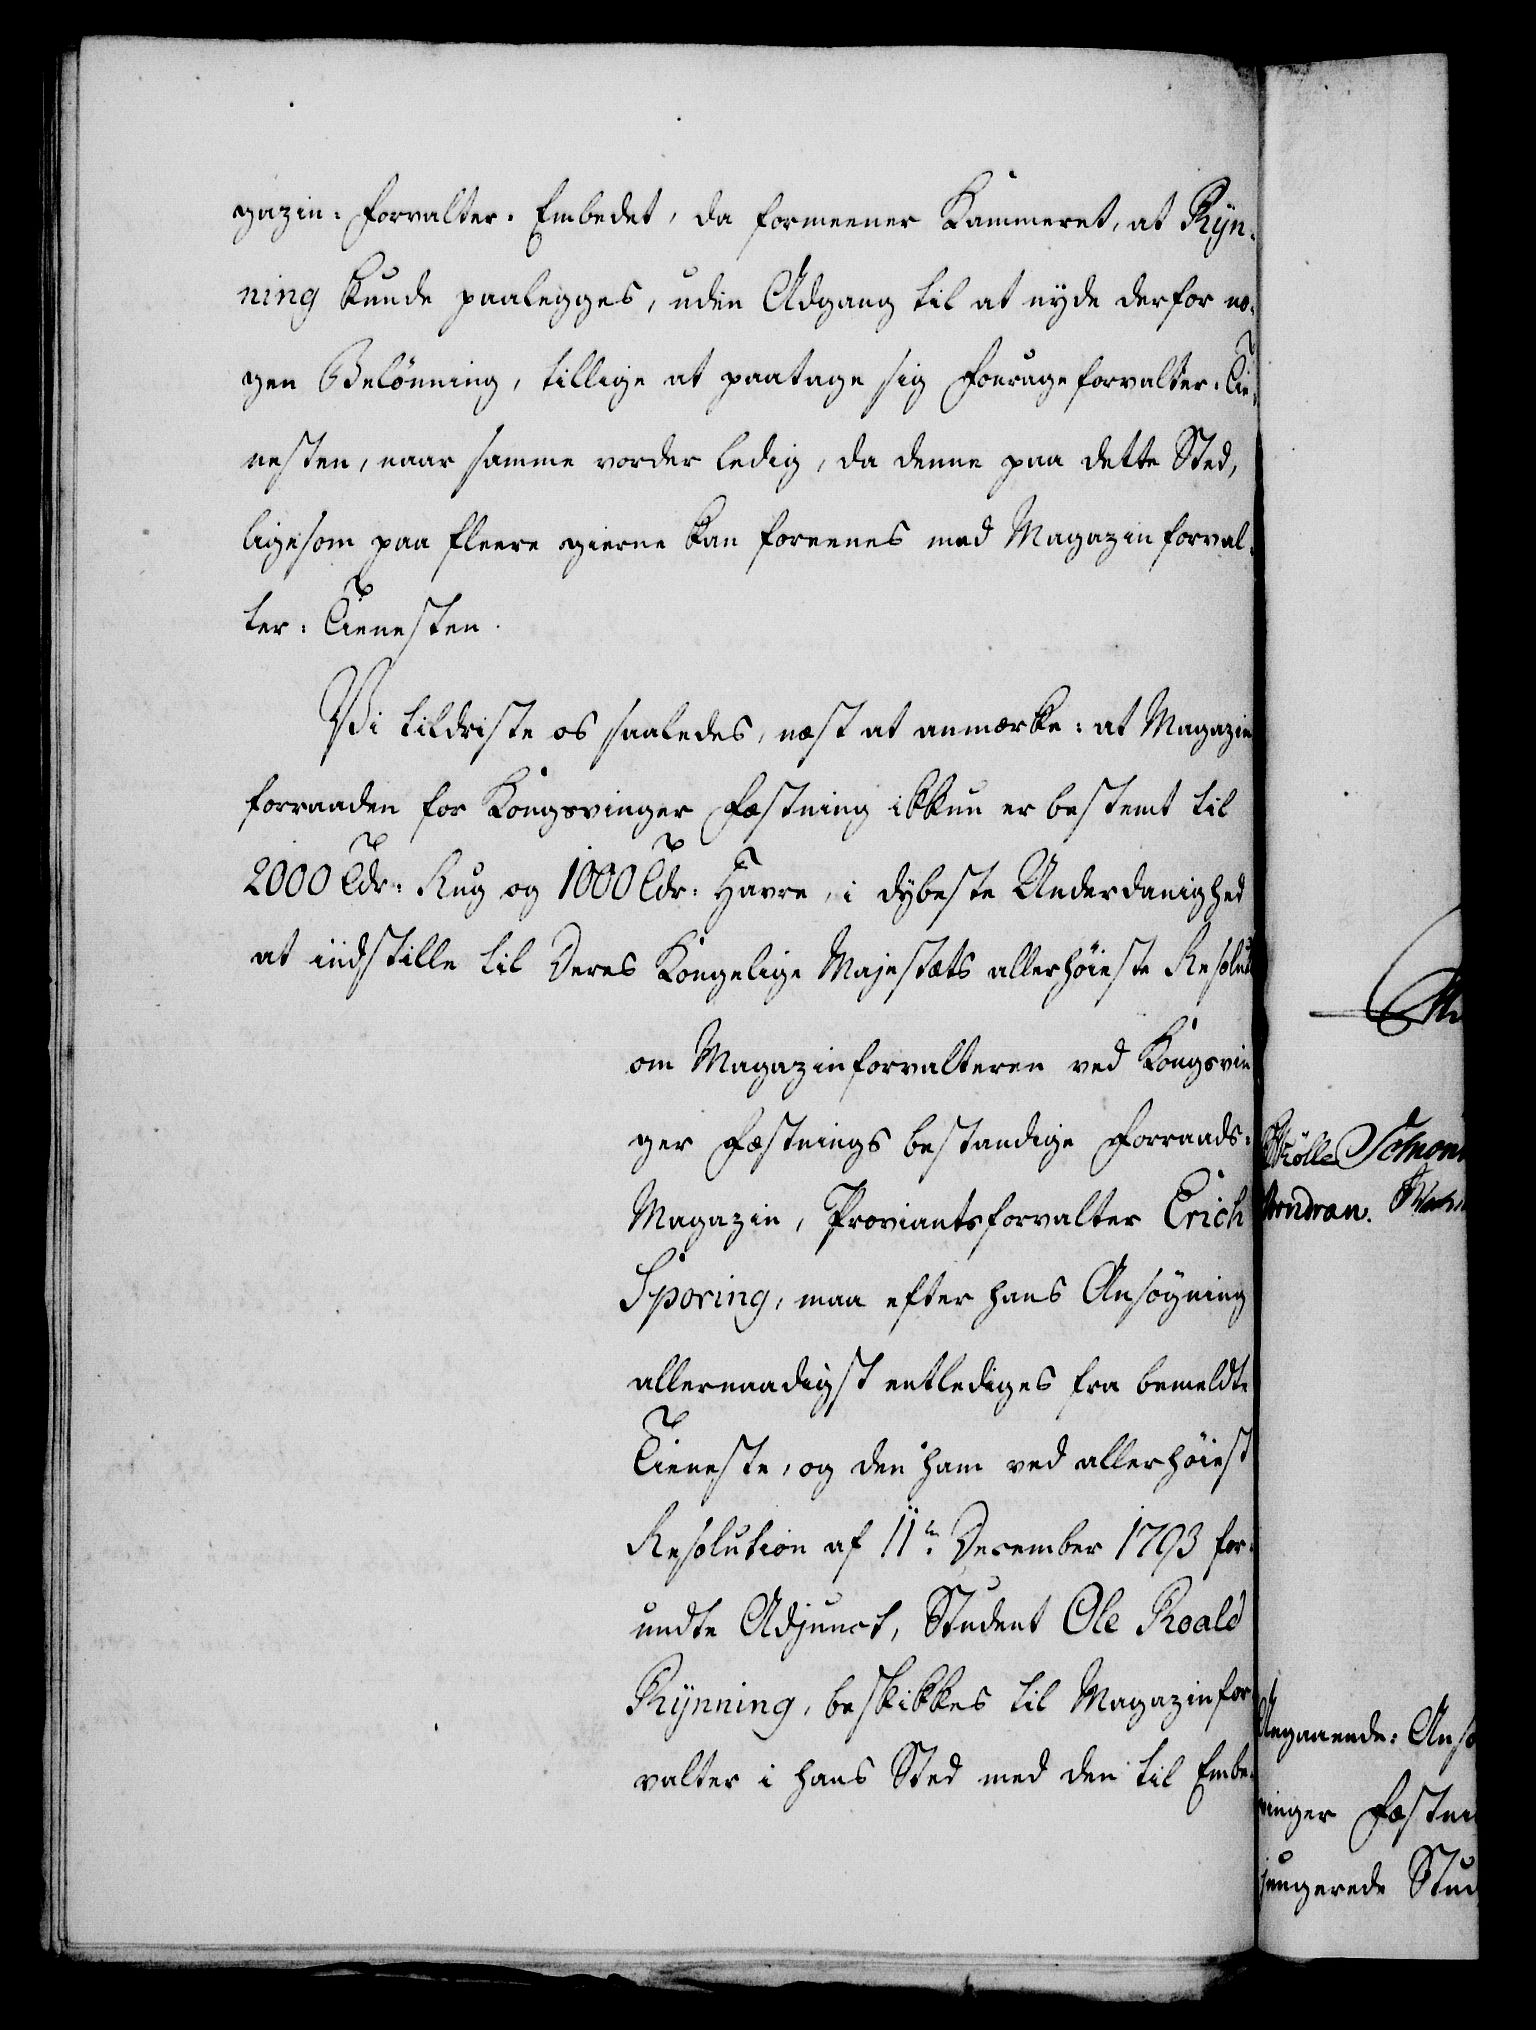 gazin-Forvalter-Embedet, da formeener Kammeret, at Rÿn-
ning kunde paalegges, uden Adgang til at nyde derfor no-
gen Belönning, tillige at paatage sig Fourageforvalter-Tie-
nesten, naar samme vorder ledig, da denne paa dette Sted,
ligesom paa fleere gierne kan foreenes med Magazinforval-
ter-Tienesten.
Vi tildriste os saaledes, næst at anmærke: at Magazin
forraaden for Kongsvinger Fæstning ikkun er bestemt til
2000 Tdr: Rug og 1000 Tdr: Havre, i dybeste Underdanighed
at indstille til Deres Kongelige Majestæts allerhöieste Resolut
om Magazinforvalteren ved Kongsvin
ger Fæstnings bestandige Forraads-
Magazin, Proviantsforvalter Erich
Sporing, maa efter hans Ansögning
allernaadigst entlediges fra bemeldte
Tieneste, og den ham ved allerhöiest
Resolution af 11te December 1793 for-
undte Adjunct, Student Ole Roald
Rÿnning, beskikkes til Magazinfor
valter i hans Sted med den til Embe-
Angaaende: Ansö
vinger Fæstni
jungerede Stud